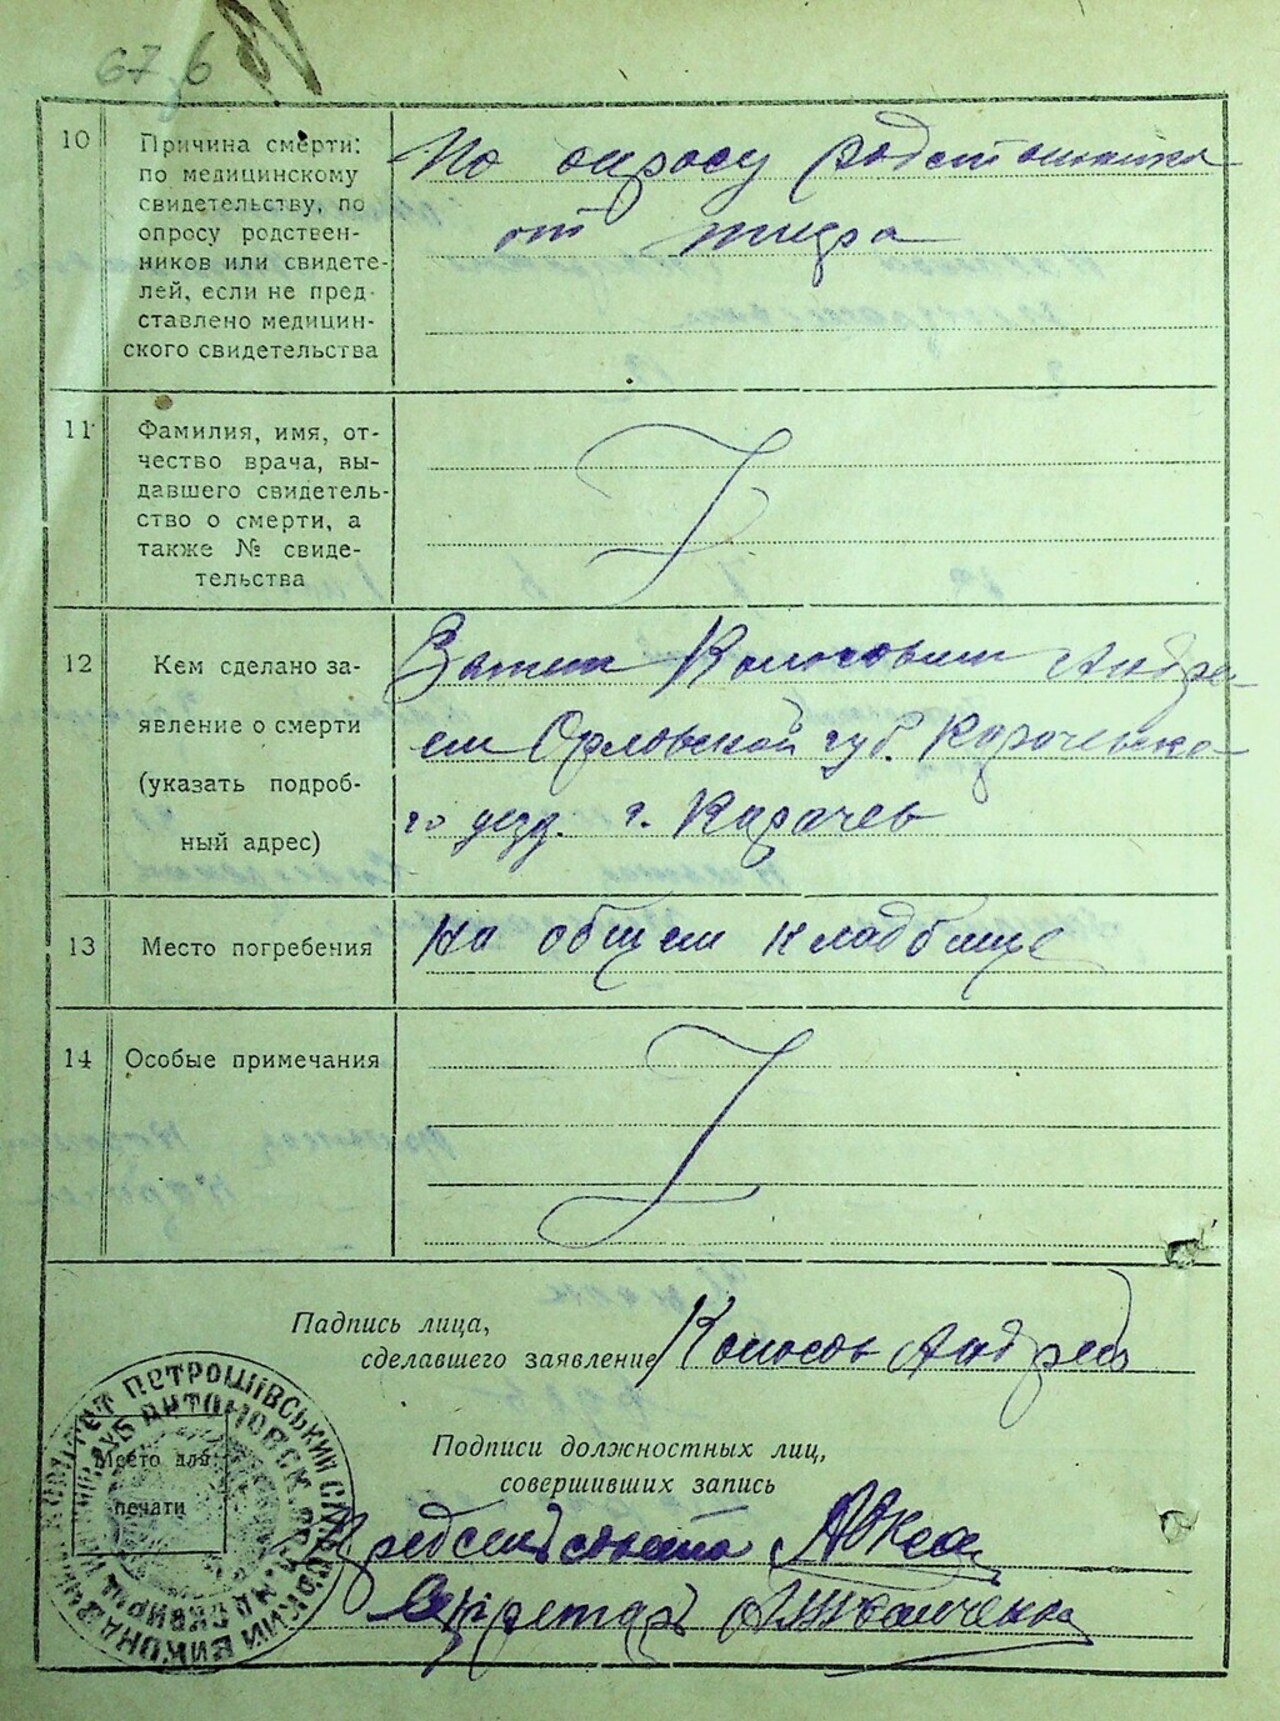 67,б
10
Причина смерти:
по медицинскому
свидетельству, по
опросу родствен-
ников или свидете-
лей, если не пред-
ставлено медицин-
ского свидетельства
По опросу
от тифа
11
Фамилия, имя, от-
чество врача, вы-
давшего свидетель-
ство о смерти, а
также № свиде-
тельства
12
Кем сделано за-
явление о смерти
(указать подроб-
ный адрес)
Зятем Колосовым Андре-
ем Орловской губ. Карачевско-
го уезд. г. Карачев
13
Место погребения
На общем кладбище
14
Особые примечания
Падпись лица,
сделавшего заявление
Колосов Андрей
Подписи должностных лиц,
совершивших запись
Место для
печати
ПЕТРОШІВСЬКИЙ
Секретарь